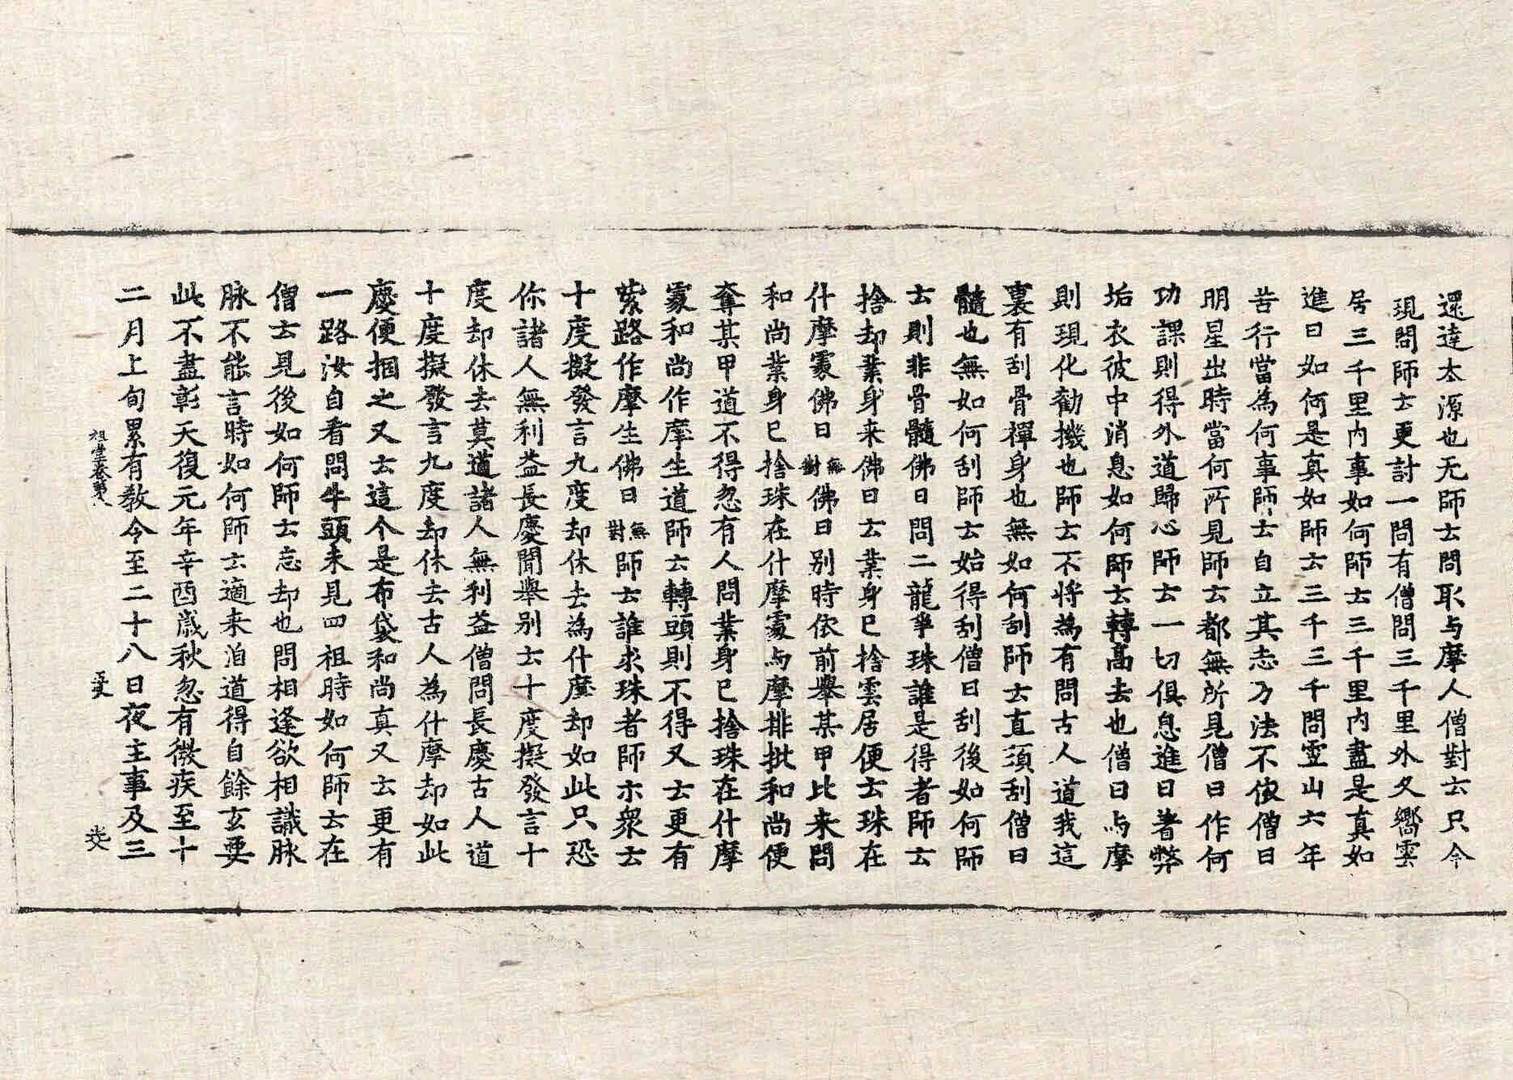 還達太源也无師云問取与摩人僧對云只今
現問師云更討一問有僧問三千里外久嚮雲
居三千里內事如何師云三千里內盡是真如
進曰如何是真如師云三千三千問霊山六年
苦行當為何事師云自立其志乃法不依僧曰
明星出時當何所見師云都無所見僧曰作何
功課則得外道歸心師云一切俱息進曰著弊
垢衣彼中消息如何師云轉高去也僧曰与摩
則現化勸機也師云不將為有問古人道我這
裏有刮骨禪身也無如何刮師云直須刮僧曰
髓也無如何刮師云始得刮僧曰刮後如何師
云則非骨髓佛曰問二龍爭珠誰是得者師云
捨却業身来佛曰云業身已捨雲居便云珠在
什摩處佛曰無對佛曰別時依前舉某甲比来問
和尚業身已捨珠在什摩處与摩排批和尚便
奪某甲道不得忽有人問業身已捨珠在什摩
處和尚作摩生道師云轉頭則不得又云更有
紫路作摩生佛曰無對師云誰求珠者師示眾云
十度擬發言九度却休去為什麼却如此只恐
你諸人無利益長慶聞舉別云十度擬發言十
度却休去莫道諸人無利益僧問長慶古人道
十度擬發言九度却休去古人為什摩却如此
慶便摑之又云這个是布袋和尚真又云更有
一路汝自看問牛頭未見四祖時如何師云在
僧云見後如何師云忘却也問相逢欲相識脉
脉不能言時如何師云適来洎道得自餘玄要
此不盡彰天復元年辛酉歲秋忽有微疾至十
二月上旬累有教令至二十八日夜主事及三
祖堂卷第八